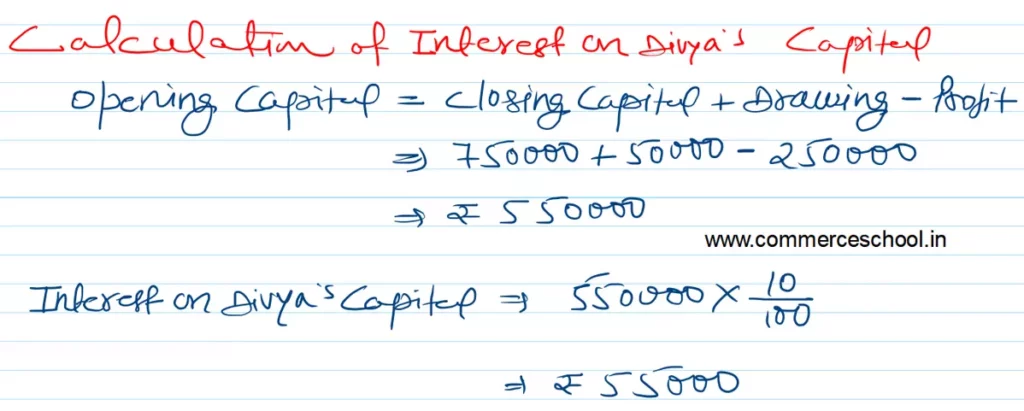 Calculation of Interest on Divya's Capital
Opening Capital = Closing Capital + Drawing - Profit
⇒ 750000 + 50000 - 250000
⇒ ₹ 550000
www.commerceschool.in
Interest on Divya's Capital ⇒ 550000 × 10/100
⇒ ₹ 55000